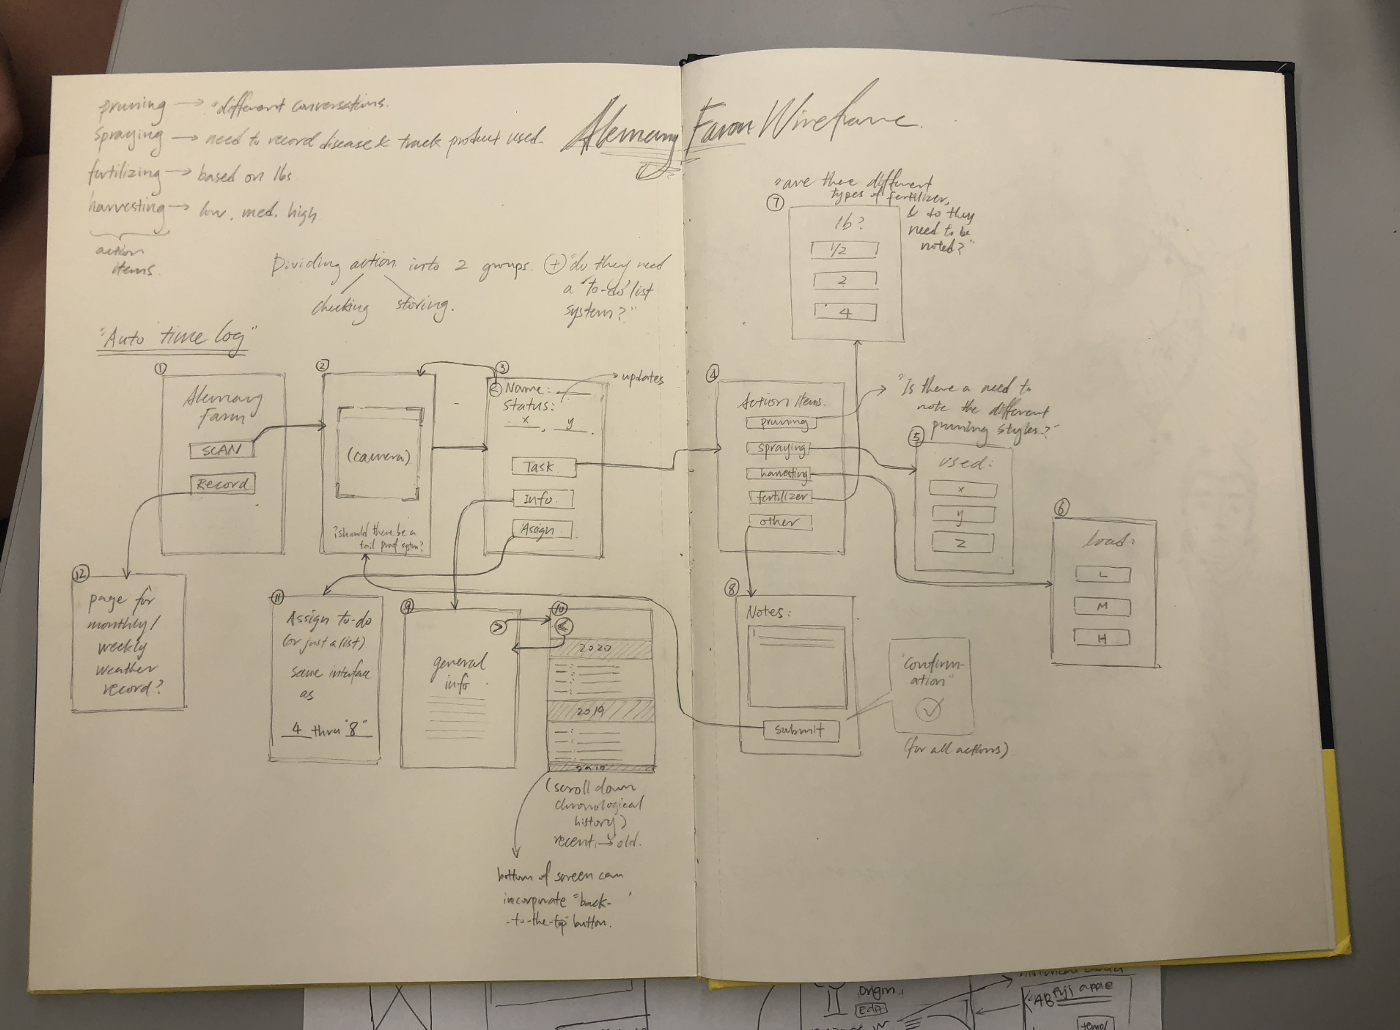 Alemany Farm Wireframe.
pruning → "different conversations.
spraying → need to record disease & track product used.
fertilizing → based on lbs
harvesting → low, med, high
action
items.
Dividing action into 2 groups.
checking storing.
+ "do they need
a 'to-do' list
system?"
"Auto time log"
1
Alemany
Farm
SCAN
Record
2
(camera)
¿should there be a
fail proof system?
3
< Name:
→ updates
Status:
x, y.
Task
Info.
Assign
4
Action items.
pruning
spraying
harvesting
fertilizer
other
"Is there a need to
note the different
pruning styles?"
5
used:
x
y
z
6
load:
L
M
H
7
"are there different
types of fertilizer,
& do they
need to be
noted?"
lb?
1/2
2
4
8
Notes:
Submit
"confirm-
ation"
(for all actions)
9
>
general
info
10
<
2020
2019
(scroll down
chronological
history)
recent → old.
bottom of screen can
incorporate "back-
-to-the-top" button.
11
Assign to-do
(or just a list)
same interface
as
4 thru "8"
12
page for
monthly/
weekly
weather
record?
origin
Edit
"AB Fuji apple
temp